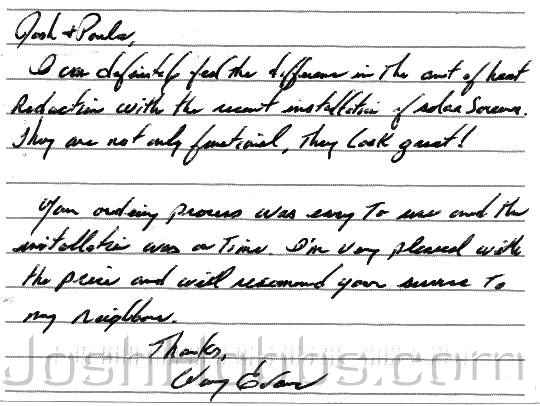 Josh & Paula,
I can definitely feel the difference in the amt of heat
Reduction with the recent installation of solar screens.
They are not only functional, they look great!
Your ordering process was easy to use and the
installation was on time. I'm very pleased with
the price and will recommend your service to
my neighbors.
Thanks,
Evans
JoshHobbs.com